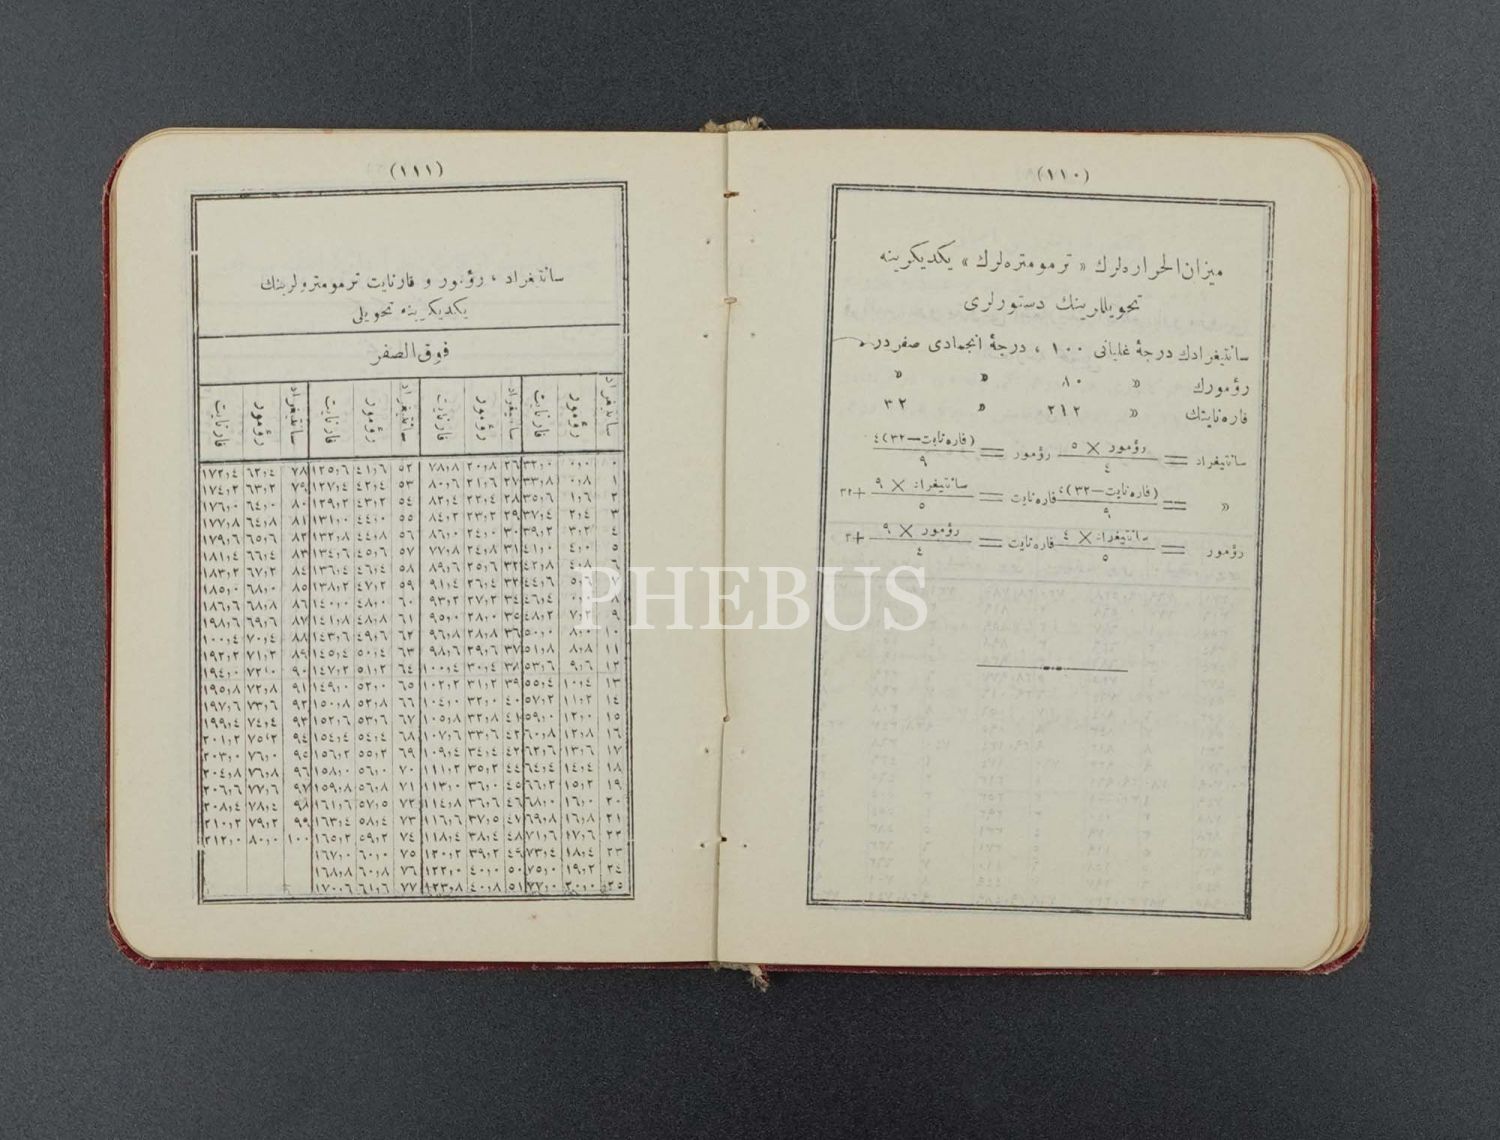 (١١٠)
ميزان الحراره‌لرك « ترمومتره‌لرك » يكديكرينه
تحويللرينك دستورلرى
سانتيغرادك درجهٔ غليانى ١٠٠ ، درجهٔ انجمادى صفردر .
رؤمورك » ٨٠ » »
فاره‌نايتك » ٢١٢ » ٣٢
سانتيغراد = رؤمور × ٥ / ٤ رؤمور = (فاره‌نايت—٣٢)٤ / ٩
» = (فاره‌نايت—٣٢)٥ / ٩ فاره‌نايت = سانتيغراد × ٩ / ٥ +٣٢
رؤمور = سانتيغراد × ٤ / ٥ فاره‌نايت = رؤمور × ٩ / ٤ +٣
(١١١)
سانتيغراد ، رؤمور و فارنايت ترمومترولرينك
يكديكرينه تحويلى
فوق الصفر
سانتيغراد رؤمور فارنايت سانتيغراد رؤمور فارنايت سانتيغراد رؤمور فارنايت سانتيغراد رؤمور فارنايت
٠ ٠,٠ ٣٢,٠ ٢٦ ٢٠,٨ ٧٨,٨ ٥٢ ٤١,٦ ١٢٥,٦ ٧٨ ٦٢,٤ ١٧٢,٤
١ ٠,٨ ٣٣,٨ ٢٧ ٢١,٦ ٨٠,٦ ٥٣ ٤٢,٤ ١٢٧,٤ ٧٩ ٦٣,٢ ١٧٤,٢
٢ ١,٦ ٣٥,٦ ٢٨ ٢٢,٤ ٨٢,٤ ٥٤ ٤٣,٢ ١٢٩,٢ ٨٠ ٦٤,٠ ١٧٦,٠
٣ ٢,٤ ٣٧,٤ ٢٩ ٢٣,٢ ٨٤,٢ ٥٥ ٤٤,٠ ١٣١,٠ ٨١ ٦٤,٨ ١٧٧,٨
٤ ٣,٢ ٣٩,٢ ٣٠ ٢٤,٠ ٨٦,٠ ٥٦ ٤٤,٨ ١٣٢,٨ ٨٢ ٦٥,٦ ١٧٩,٦
٥ ٤,٠ ٤١,٠ ٣١ ٢٤,٨ ٧٧,٨ ٥٧ ٤٥,٦ ١٣٤,٦ ٨٣ ٦٦,٤ ١٨١,٤
٦ ٤,٨ ٤٢,٨ ٣٢ ٢٥,٦ ٨٩,٦ ٥٨ ٤٦,٤ ١٣٦,٤ ٨٤ ٦٧,٢ ١٨٣,٢
٧ ٥,٦ ٤٤,٦ ٣٣ ٢٦,٤ ٩١,٤ ٥٩ ٤٧,٢ ١٣٨,٢ ٨٥ ٦٨,٠ ١٨٥,٠
٨ ٤٦,٤ ٣٤ ٢٧,٢ ٩٣,٢ ٦٠ ٤٨,٠ ١٤٠,٠ ٨٦ ٦٨,٨ ١٨٦,٦
٩ ٧,٢ ٤٨,٢ ٣٥ ٢٨,٠ ٩٥,٠ ٦١ ٤٨,٨ ١٤١,٨ ٨٧ ٦٩,٦ ١٩٨,٦
١٠ ٨,٠ ٥٠,٠ ٣٦ ٢٨,٨ ٩٦,٨ ٦٢ ٤٩,٦ ١٤٣,٦ ٨٨ ٧٠,٤ ١٠٠,٤
١١ ٨,٨ ٥١,٨ ٣٧ ٢٩,٦ ٩٨,٦ ٦٣ ٥٠,٤ ١٤٥,٤ ٨٩ ٧١,٢ ١٩٢,٢
١٢ ٩,٦ ٥٣,٦ ٣٨ ٣٠,٤ ١٠٠,٤ ٦٤ ٥١,٢ ١٤٧,٢ ٩٠ ٧٢,٠ ١٩٤,٠
١٣ ١٠,٤ ٥٥,٤ ٣٩ ٣١,٢ ١٠٢,٢ ٦٥ ٥٢,٠ ١٤٩,٠ ٩١ ٧٢,٨ ١٩٥,٨
١٤ ١١,٢ ٥٧,٢ ٤٠ ٣٢,٠ ١٠٤,٠ ٦٦ ٥٢,٨ ١٥٠,٨ ٩٢ ٧٣,٦ ١٩٧,٦
١٥ ١٢,٠ ٥٩,٠ ٤١ ٣٢,٨ ١٠٥,٨ ٦٧ ٥٣,٦ ١٥٢,٦ ٩٣ ٧٤,٤ ١٩٩,٤
١٦ ١٢,٨ ٦٠,٨ ٤٢ ٣٣,٦ ١٠٧,٦ ٦٨ ٥٤,٤ ١٥٤,٤ ٩٤ ٧٥,٢ ٢٠١,٢
١٧ ١٣,٦ ٦٢,٦ ٤٣ ٣٤,٤ ١٠٩,٤ ٦٩ ٥٥,٢ ١٥٦,٢ ٩٥ ٧٦,٠ ٢٠٣,٠
١٨ ١٤,٤ ٦٤,٤ ٤٤ ٣٥,٢ ١١١,٢ ٧٠ ٥٦,٠ ١٥٨,٠ ٩٦ ٧٦,٨ ٢٠٤,٨
١٩ ١٥,٢ ٦٦,٢ ٤٥ ٣٦,٠ ١١٣,٠ ٧١ ٥٦,٨ ١٥٩,٨ ٩٧ ٧٧,٦ ٢٠٦,٦
٢٠ ١٦,٠ ٦٨,٠ ٤٦ ٣٦,٦ ١١٤,٨ ٧٢ ٥٧,٥ ١٦١,٦ ٩٨ ٧٨,٤ ٢٠٨,٤
٢١ ١٦,٨ ٦٩,٨ ٤٧ ٣٧,٥ ١١٦,٦ ٧٣ ٥٨,٤ ١٦٣,٤ ٩٩ ٧٩,٢ ٢١٠,٢
٢٢ ١٧,٦ ٧١,٦ ٤٨ ٣٨,٤ ١١٨,٤ ٧٤ ٥٩,٢ ١٦٥,٢ ١٠٠ ٨٠,٠ ٢١٢,٠
٢٣ ١٨,٤ ٧٣,٤ ٤٩ ٣٩,٢ ١٢٠,٢ ٧٥ ٦٠,٠ ١٦٧,٠
٢٤ ١٩,٢ ٧٥,٠ ٥٠ ٤٠,٠ ١٢٢,٠ ٧٦ ٦٠,٨ ١٦٨,٨
٢٥ ٢٠,٠ ٧٧,٠ ٥١ ٤٠,٨ ١٢٣,٨ ٧٧ ٦١,٦ ١٧٠,٦
PHEBUS